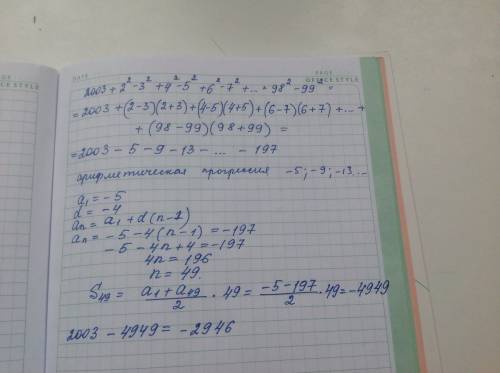 DATE
PAGE
OFFICE STYLE
PAGE
OFFICE STYLE
2003 + 2² - 3² + 4² - 5² + 6² - 7² + ... + 98² - 99² =
= 2003 + (2-3)(2+3) + (4-5)(4+5) + (6-7)(6+7) + ... +
+ (98 - 99)(98 + 99) =
= 2003 - 5 - 9 - 13 - ... - 197
арифметическая прогрессия -5; -9; -13...
a₁ = -5
d = -4
aₙ = a₁ + d(n-1)
aₙ = -5 - 4(n-1) = -197
-5 - 4n + 4 = -197
4n = 196
n = 49.
S₄₉ = (a₁ + a₄₉)/2 · 49 = (-5-197)/2 · 49 = -4949
2003 - 4949 = -2946